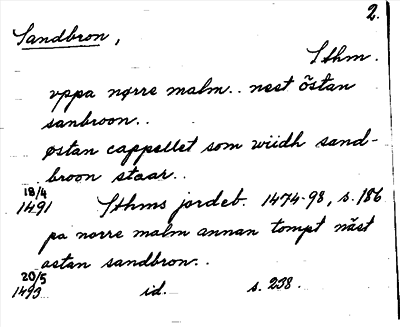 2.
Sandbron,
Sthm.
vppa nørre malm.. nest östan
sanbroon..
østan cappellet som wiidh sand-
broon staar..
18/4
1491 Sthms jordeb. 1474-98, s. 186
pa norre malm annan tompt näst
astan sandbron..
20/5
1493 id. s. 238.